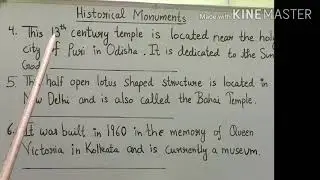 Historical Monuments
Made with KINEMASTER
4. This 13th century temple is located near the holy
city of Puri in Odisha. It is dedicated to the Sun
God.
5. This half open lotus shaped structure is located in
New Delhi and is also called the Bahai Temple.
6. It was built in 1960 in the memory of Queen
Victoria in Kolkata and is currently a museum.